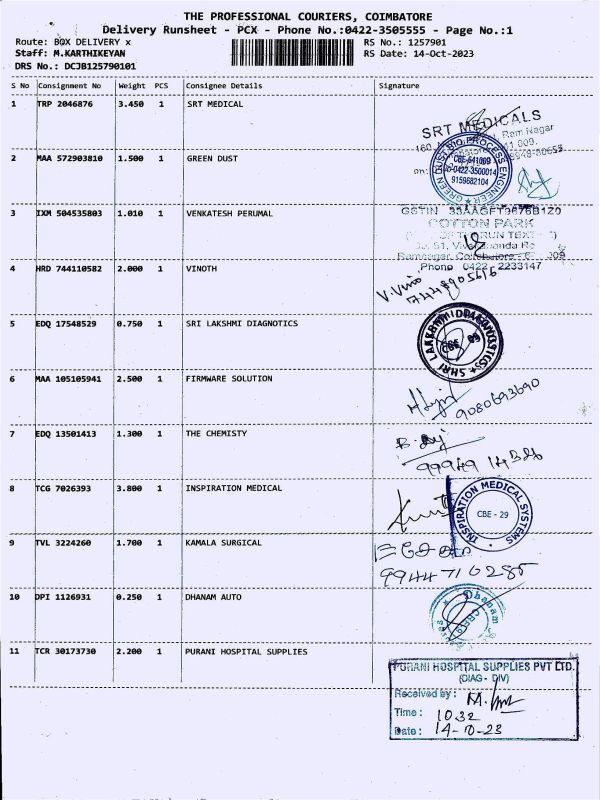 THE PROFESSIONAL COURIERS, COIMBATORE
Delivery Runsheet - PCX - Phone No.:0422-3505555 - Page No.:1
Route: BOX DELIVERY x
RS No.: 1257901
Staff: M.KARTHIKEYAN
RS Date: 14-Oct-2023
DRS No.: DCJB125790101
S No Consignment No Weight PCS Consignee Details Signature
1 TRP 2046876 3.450 1 SRT MEDICAL
SRT MEDICALS
Ram Nagar
2 MAA 572903810 1.500 1 GREEN DUST
GREEN DUST BIO PROCESS ENGINEER
CBE-641009
0422-3500014
9159682104
3 IXM 504535803 1.010 1 VENKATESH PERUMAL
GSTIN
COTTON PARK
Phone 0422 2233147
4 HRD 744110582 2.000 1 VINOTH
5 EDQ 17548529 0.750 1 SRI LAKSHMI DIAGNOSTICS
6 MAA 105105941 2.500 1 FIRMWARE SOLUTION
9080693690
7 EDQ 13501413 1.300 1 THE CHEMISTY
8 TCG 7026393 3.800 1 INSPIRATION MEDICAL
INSPIRATION MEDICAL SYSTEMS
CBE - 29
9 TVL 3224260 1.700 1 KAMALA SURGICAL
9944710285
10 DPI 1126931 0.250 1 DHANAM AUTO
Dhanam
11 TCR 30173730 2.200 1 PURANI HOSPITAL SUPPLIES
PURANI HOSPITAL SUPPLIES PVT LTD.
(DIAG - DIV)
Received by :
Time : 10.32
Date : 14-10-23